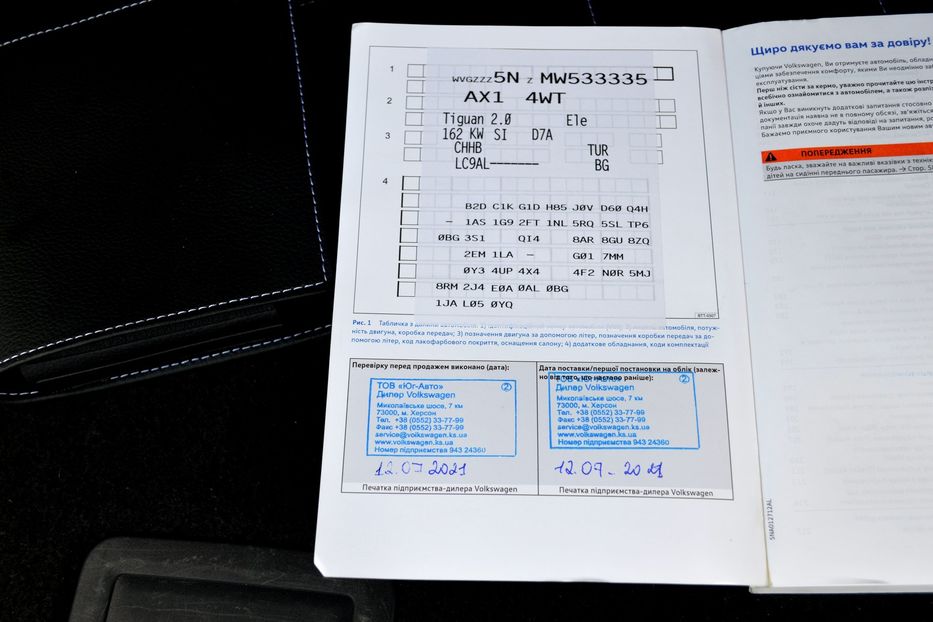 1
WVGZZZ5N Z MW533335
AX1 4WT
2
Tiguan 2.0 Ele
162 KW SI D7A
3
CHHB TUR
LC9AL------- BG
4
B2D C1K G1D H85 J0V D60 Q4H
- 1AS 1G9 2FT 1NL 5RQ 5SL TP6
0BG 3S1 QI4 8AR 8GU 8ZQ
2EM 1LA - G01 7MM
0Y3 4UP 4X4 4F2 N0R 5MJ
8RM 2J4 E0A 0AL 0BG
1JA L05 0YQ
Рис. 1 Табличка з
ність двигуна, коробка передач; 3) позначення двигуна за допомогою літер, позначення коробки передач за до-
помогою літер, код лакофарбового покриття, оснащення салону; 4) додаткове обладнання, коди комплектації
Перевірку перед продажем виконано (дата):
ТОВ «Юг-Авто» 2
Дилер Volkswagen
Миколаївське шосе, 7 км
73000, м. Херсон
Тел. +38 (0552) 33-77-99
Факс +38 (0552) 33-77-99
service@volkswagen.ks.ua
www.volkswagen.ks.ua
Номер підприємства 943 24360
12.07 2021
Печатка підприємства-дилера Volkswagen
Дата поставки/першої постановки на облік (залеж-
но від того, що настало раніше):
2
Дилер Volkswagen
Миколаївське шосе, 7 км
73000, м. Херсон
Тел. +38 (0552) 33-77-99
Факс +38 (0552) 33-77-99
service@volkswagen.ks.ua
www.volkswagen.ks.ua
Номер підприємства 943 24360
12.07. 2021
Печатка підприємства-дилера Volkswagen
Щиро дякуємо вам за довіру!
Купуючи Volkswagen, Ви отримуєте автомобіль,
ціями забезпечення комфорту, якими Ви неодмінно
експлуатування.
Перш ніж сісти за кермо, уважно прочитайте цю
всебічно ознайомитися з автомобілем, а також
й інших.
Якщо у Вас виникнуть додаткові запитання стосовно
документація наявна не в повному обсязі,
панії завжди охоче дадуть відповіді на запитання,
Бажаємо приємного користування Вашим новим
ПОПЕРЕДЖЕННЯ
Будь ласка, зважайте на важливі вказівки з
дітей на сидінні переднього пасажира. → Стор.
5NA012712AL